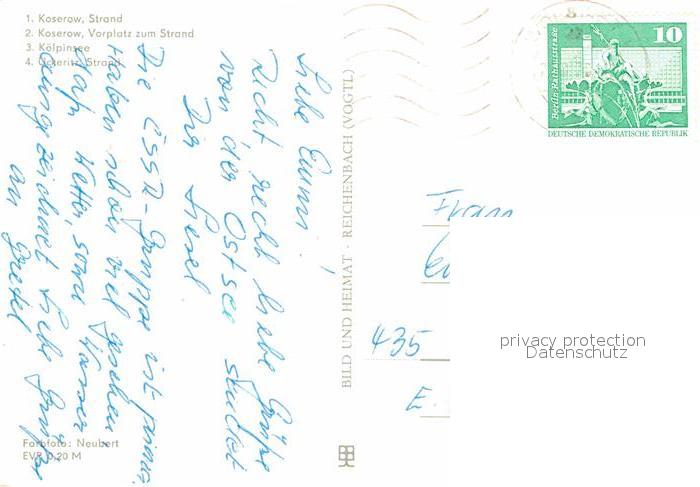 1. Koserow, Strand
2. Koserow, Vorplatz zum Strand
3. Kölpinsee
4. Ückeritz, Strand
Liebe Emmi!
Recht recht liebe Grüße
von der Ostsee sendet
Die Liesel
Die ČSSR-Gruppe ist prima.
Haben schon viel gesehen.
Wetter, sonst
zeichnet. Liebe Grüße
an Gretel
Farbfoto: Neubert
EVP 0,20 M
BILD UND HEIMAT · REICHENBACH (VOGTL)
10
Berlin, Rathausstraße
DEUTSCHE DEMOKRATISCHE REPUBLIK
Frau
435
E
privacy protection
Datenschutz